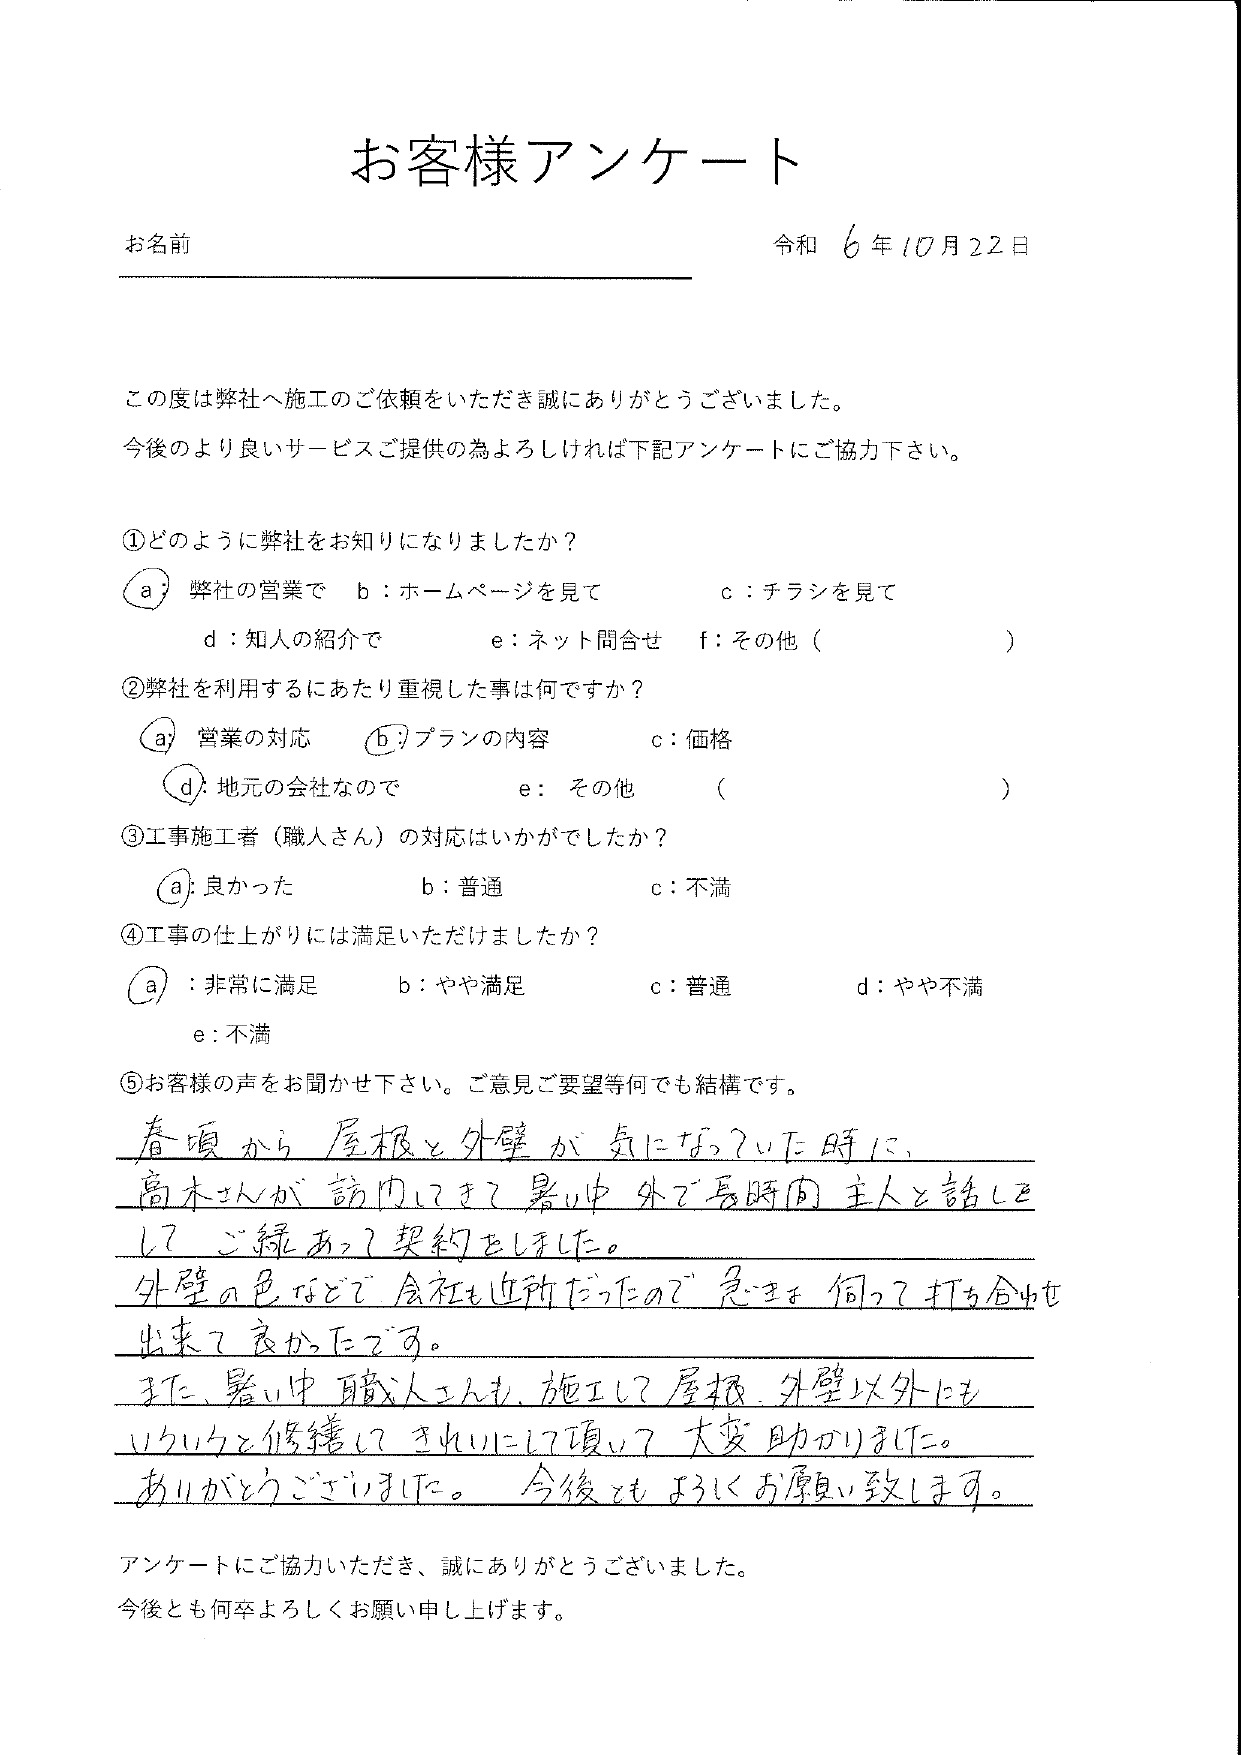 お客様アンケート
お名前　令和 6年10月22日
この度は弊社へ施工のご依頼をいただき誠にありがとうございました。
今後のより良いサービスご提供の為よろしければ下記アンケートにご協力下さい。
①どのように弊社をお知りになりましたか？
a： 弊社の営業で　b：ホームページを見て　c：チラシを見て
d：知人の紹介で　e：ネット問合せ　f：その他（　）
②弊社を利用するにあたり重視した事は何ですか？
a： 営業の対応　b：プランの内容　c：価格
d：地元の会社なので　e： その他　（　）
③工事施工者（職人さん）の対応はいかがでしたか？
a：良かった　b：普通　c：不満
④工事の仕上がりには満足いただけましたか？
a ：非常に満足　b：やや満足　c：普通　d：やや不満
e：不満
⑤お客様の声をお聞かせ下さい。ご意見ご要望等何でも結構です。
春頃から 屋根と外壁が 気になっていた時に、
高木さんが 訪問してきて 暑い中 外で長時間 主人と話しを
して ご縁あって契約をしました。
外壁の色などで 会社も近所だったので 急きょ 伺って打ち合わせ
出来て良かったです。
また、暑い中 職人さんも、施工して屋根、外壁以外にも
いろいろと修繕して きれいにして頂いて 大変助かりました。
ありがとうございました。 今後ともよろしくお願い致します。
アンケートにご協力いただき、誠にありがとうございました。
今後とも何卒よろしくお願い申し上げます。